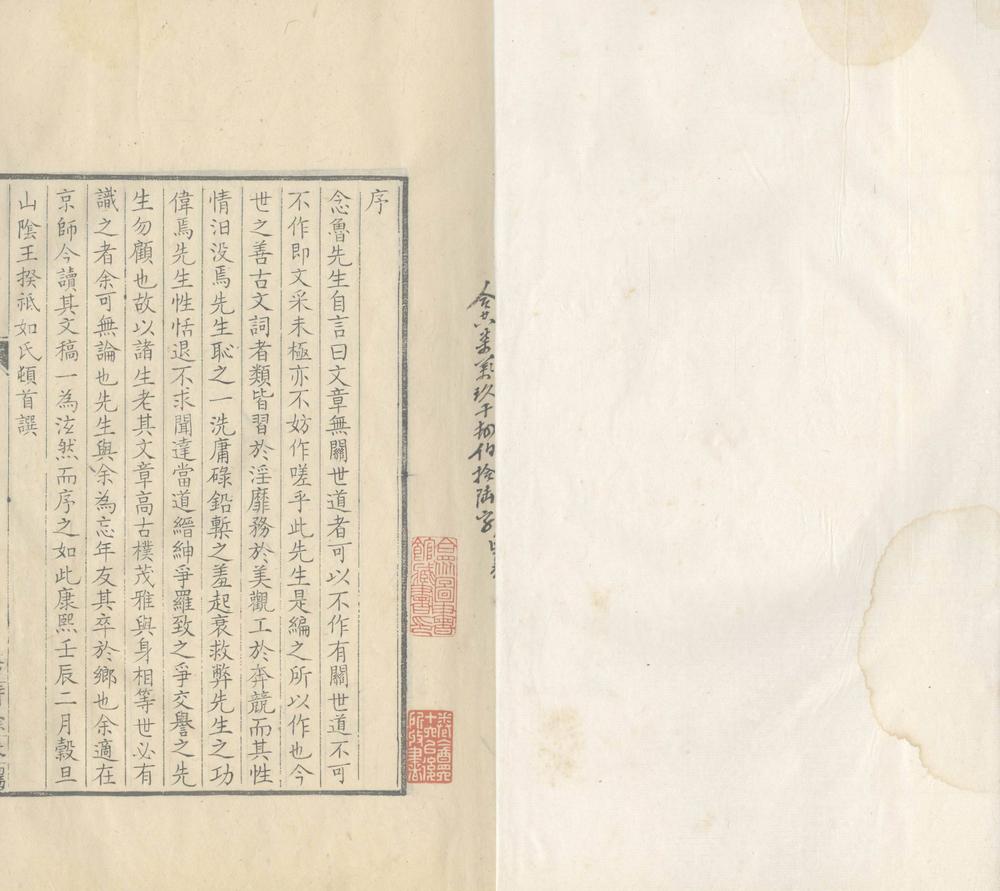 序
念魯先生自言曰文章無關世道者可以不作有關世道不可
不作即文采未極亦不妨作嗟乎此先生是編之所以作也今
世之善古文詞者類皆習於淫靡務於美觀工於奔競而其性
情汨没焉先生恥之一洗庸碌鉛槧之羞起衰救弊先生之功
偉焉先生性恬退不求聞達當道縉紳爭羅致之爭交譽之先
生勿顧也故以諸生老其文章高古樸茂雅與身相等世必有
識之者余可無論也先生與余為忘年友其卒於鄉也余適在
京師今讀其文稿一為泫然而序之如此康熙壬辰二月穀旦
山陰王揆祗如氏頓首譔
合眾圖書
館藏書印